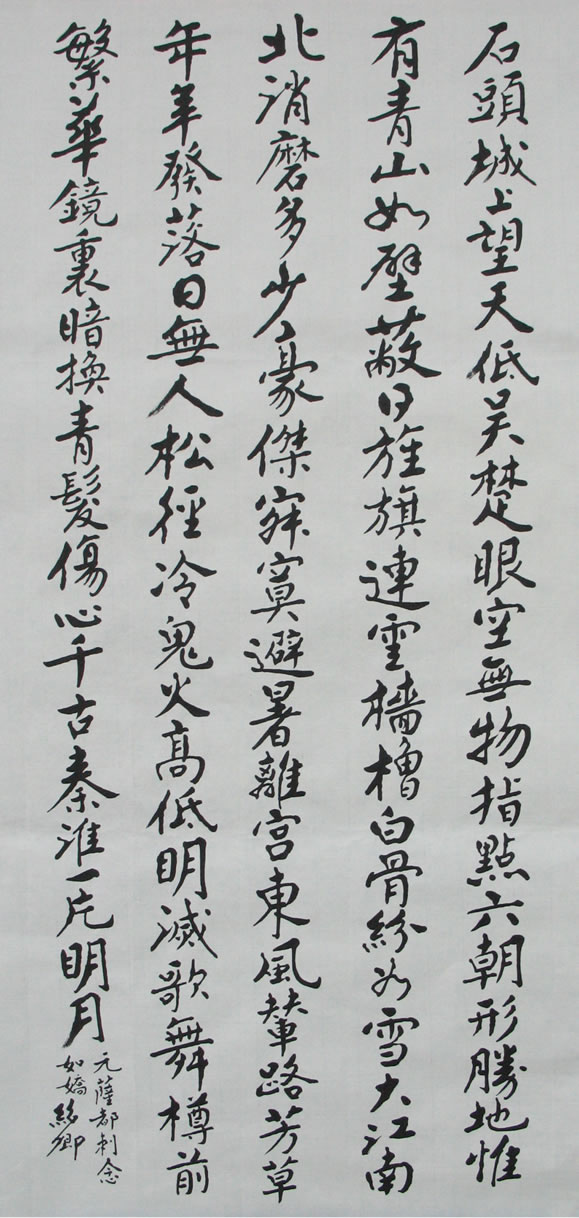 石頭城上望天低吳楚眼空無物指點六朝形勝地惟
有青山如壁蔽日旌旗連雲檣櫓白骨紛如雪大江南
北消磨多少豪傑寂寞避暑離宮東風輦路芳草
年年發落日無人松徑冷鬼火高低明滅歌舞樽前
繁華鏡裏暗換青髮傷心千古秦淮一片明月
元薩都剌念
如嬌 卿